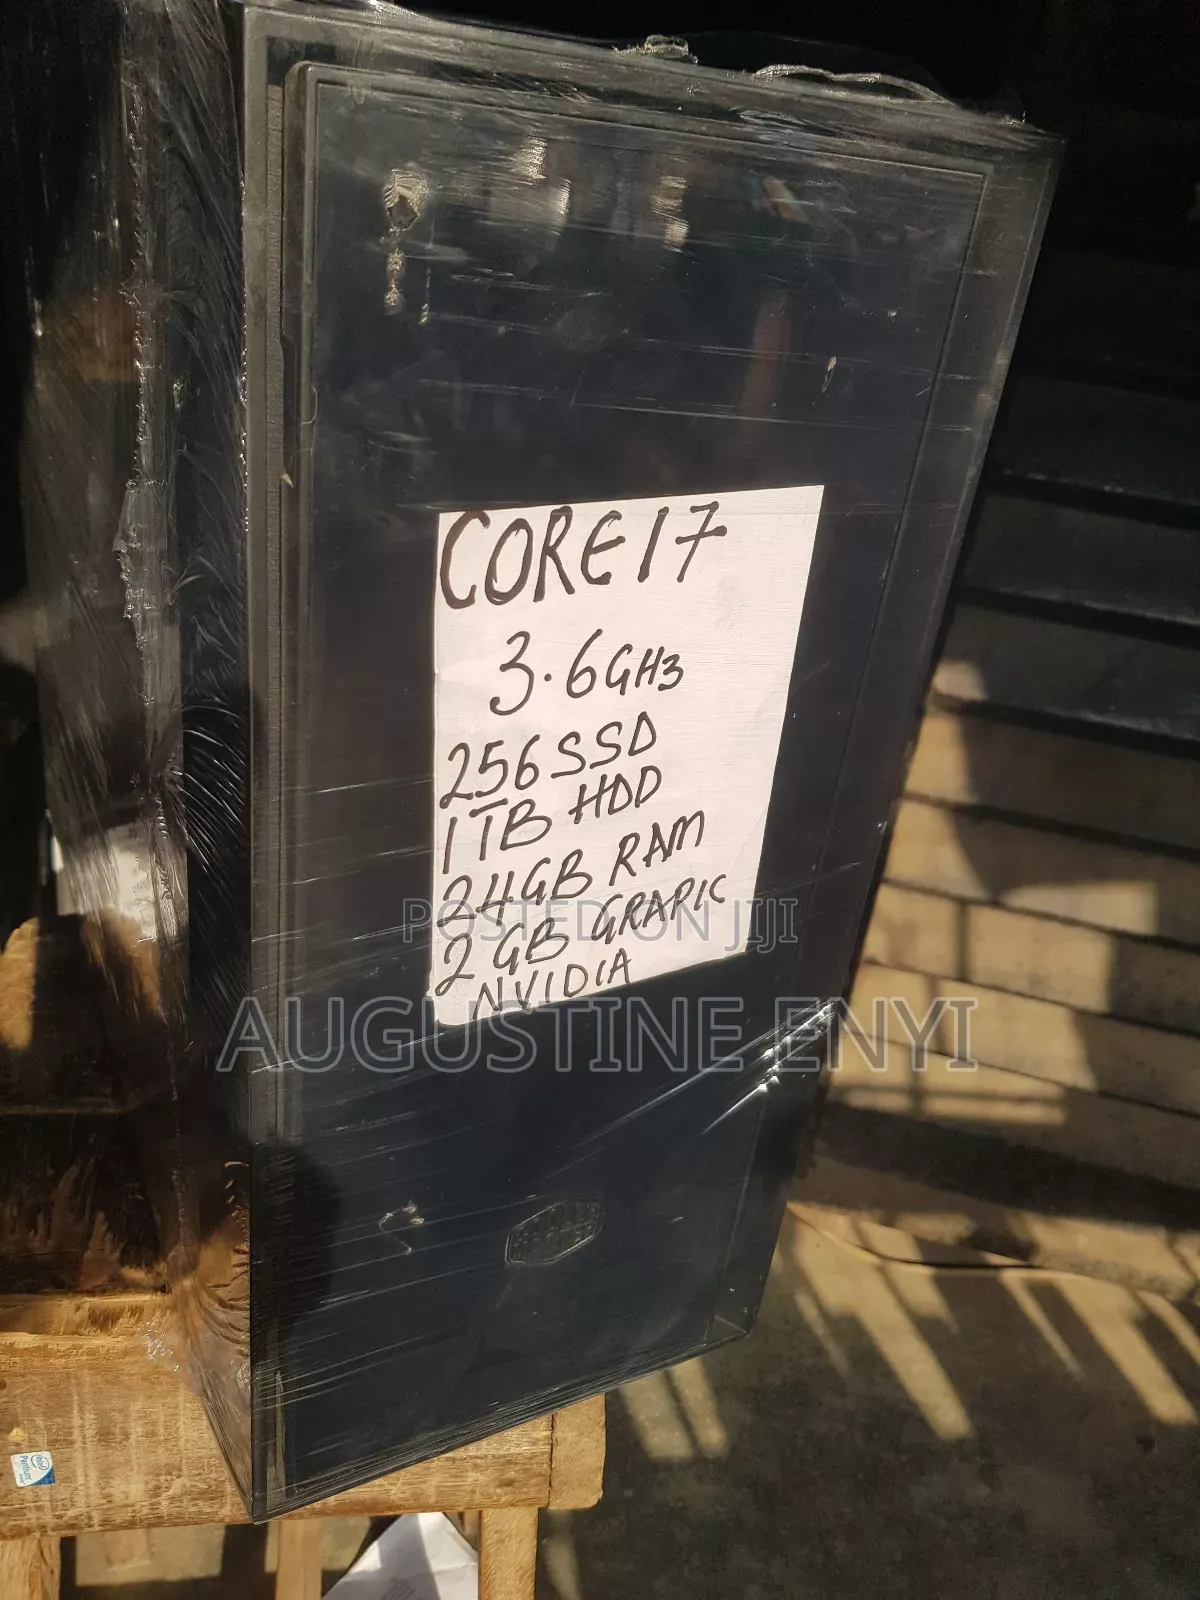 CORE I7
3.6GHz
256SSD
1TB HDD
24GB RAM
2GB GRAPIC
NVIDIA
POSTED ON JIJI
AUGUSTINE ENYI
COOLER
MASTER
intel
Pentium